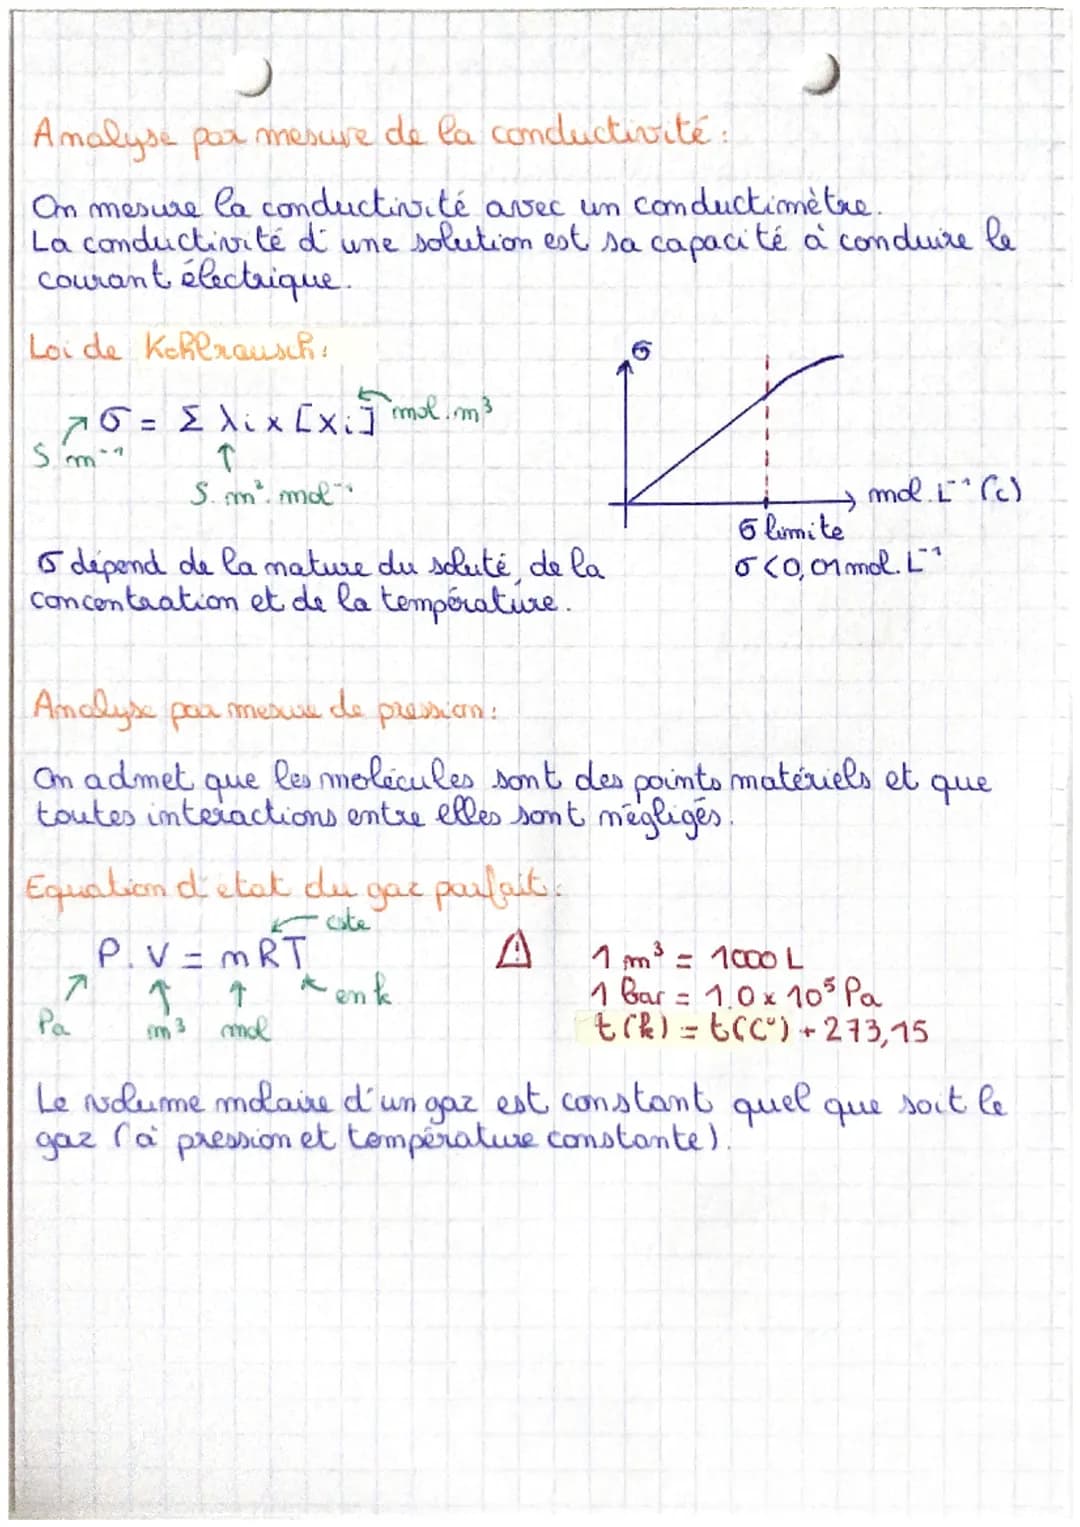 Analyse par mesure de la conductivité :
On mesure la conductivité avec un conductimètre.
La conductivité d'une solution est sa capacité à conduire le
courant électrique.
Loi de Kohlrausch :
σ = Σ λi x [Xi] mol.m³
S.m⁻¹
S.m².mol⁻¹
σ
mol.L⁻¹ (c)
σ limite
σ < 0,01 mol.L⁻¹
σ dépend de la nature du soluté, de la
concentration et de la température.
Analyse par mesure de pression :
On admet que les molécules sont des points matériels et que
toutes interactions entre elles sont négligés.
Equation d'etat du gaz parfait :
cste
P.V = nRT
en k
Pa
m³ mol
⚠ 1 m³ = 1000 L
1 Bar = 1.0 x 10⁵ Pa
t(k) = t(C°) + 273,15
Le volume molaire d'un gaz est constant quel que soit le
gaz (à pression et température constante).